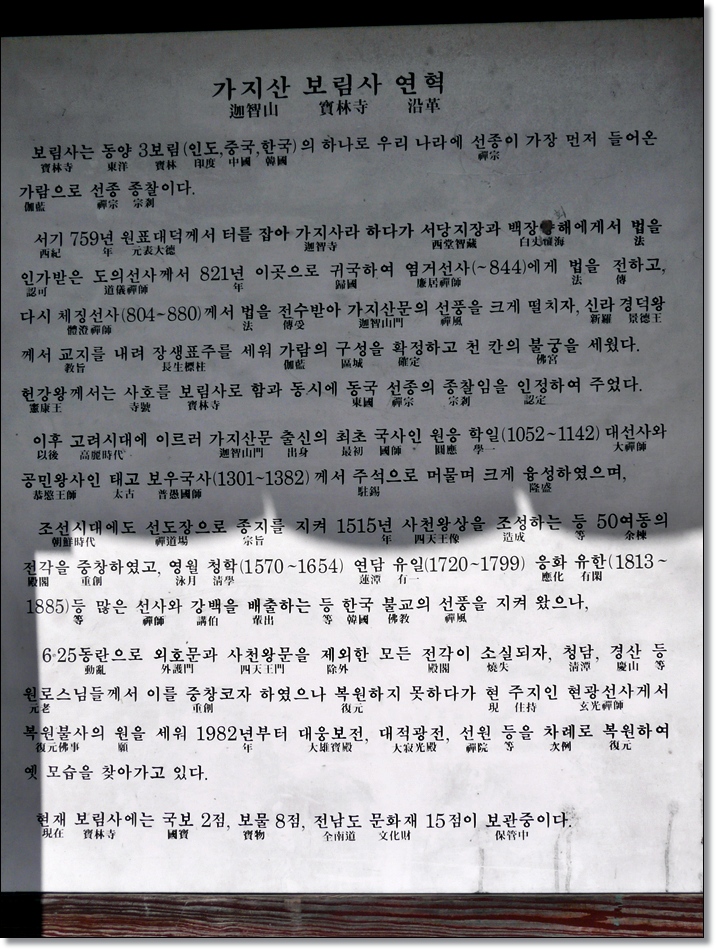 가지산 보림사 연혁
迦智山 寶林寺 沿革
보림사는 동양 3보림(인도,중국,한국)의 하나로 우리 나라에 선종이 가장 먼저 들어온
寶林寺 東洋 寶林 印度 中國 韓國 禪宗
가람으로 선종 종찰이다.
伽藍 禪宗 宗刹
서기 759년 원표대덕께서 터를 잡아 가지사라 하다가 서당지장과 백장 해에게서 법을
西紀 年 元表大德 迦智寺 西堂智藏 白丈懷海 法
인가받은 도의선사께서 821년 이곳으로 귀국하여 염거선사(~844)에게 법을 전하고,
認可 道儀禪師 年 歸國 廉居禪師 法 傳
다시 체징선사(804~880)께서 법을 전수받아 가지산문의 선풍을 크게 떨치자, 신라 경덕왕
體澄禪師 法 傳受 迦智山門 禪風 新羅 景德王
께서 교지를 내려 장생표주를 세워 가람의 구성을 확정하고 천 칸의 불궁을 세웠다.
教旨 長生標柱 伽藍 區城 確定 佛宮
헌강왕께서는 사호를 보림사로 함과 동시에 동국 선종의 종찰임을 인정하여 주었다.
憲康王 寺號 寶林寺 東國 禪宗 宗刹 認定
이후 고려시대에 이르러 가지산문 출신의 최초 국사인 원응 학일(1052~1142) 대선사와
以後 高麗時代 迦智山門 出身 最初 國師 圓應 學一 大禪師
공민왕사인 태고 보우국사(1301~1382) 께서 주석으로 머물며 크게 융성하였으며,
恭愍王師 太古 普愚國師 駐錫 隆盛
조선시대에도 선도장으로 종지를 지켜 1515년 사천왕상을 조성하는 등 50여동의
朝鮮時代 禪道場 宗旨 年 四天王像 造成 等 余棟
전각을 중창하였고, 영월 청학(1570~1654) 연담 유일(1720~1799) 응화 유한(1813~
殿閣 重創 泳月 淸學 蓮潭 有一 應化 有閑
1885)등 많은 선사와 강백을 배출하는 등 한국 불교의 선풍을 지켜 왔으나,
等 禪師 講伯 輩出 等 韓國 佛教 禪風
6·25동란으로 외호문과 사천왕문을 제외한 모든 전각이 소실되자, 청담, 경산 등
動亂 外護門 四天王門 除外 殿閣 燒失 淸潭 慶山 等
원로스님들께서 이를 중창코자 하였으나 복원하지 못하다가 현 주지인 현광선사게서
元老 重創 復元 現 住持 玄光禪師
복원불사의 원을 세워 1982년부터 대웅보전, 대적광전, 선원 등을 차례로 복원하여
復元佛事 願 年 大雄寶殿 大寂光殿 禪院 等 次例 復元
옛 모습을 찾아가고 있다.
현재 보림사에는 국보 2점, 보물 8점, 전남도 문화재 15점이 보관중이다.
現在 寶林寺 國寶 寶物 全南道 文化財 保管中